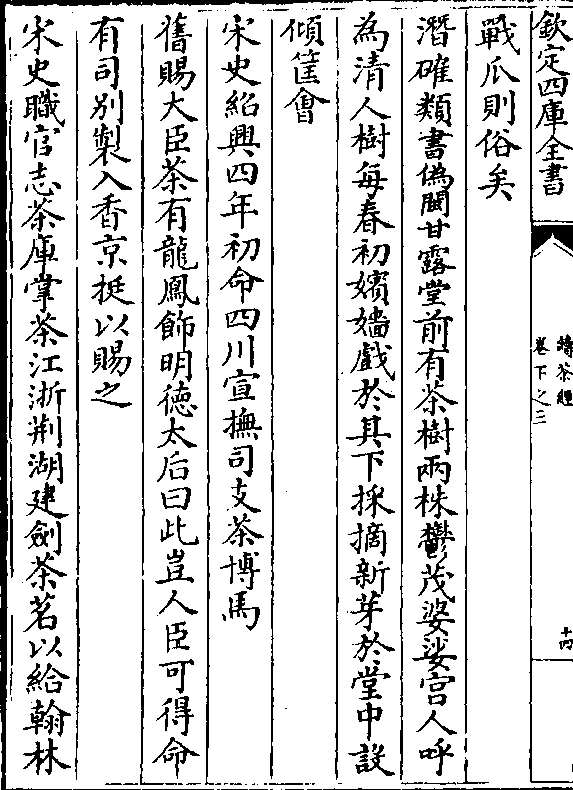 欽定四庫全書
續茶經
卷下之三
十四
戰爪則俗矣
潛確類書偽閩甘露堂前有茶樹兩株鬱茂婆娑宫人呼
為清人樹每春初嬪嬙戲於其下採摘新芽於堂中設
傾筐會
宋史紹興四年初命四川宣撫司支茶博馬
舊賜大臣茶有龍鳳飾明徳太后曰此豈人臣可得命
有司别製入香京挺以賜之
宋史職官志茶庫掌茶江浙荆湖建劒茶茗以給翰林